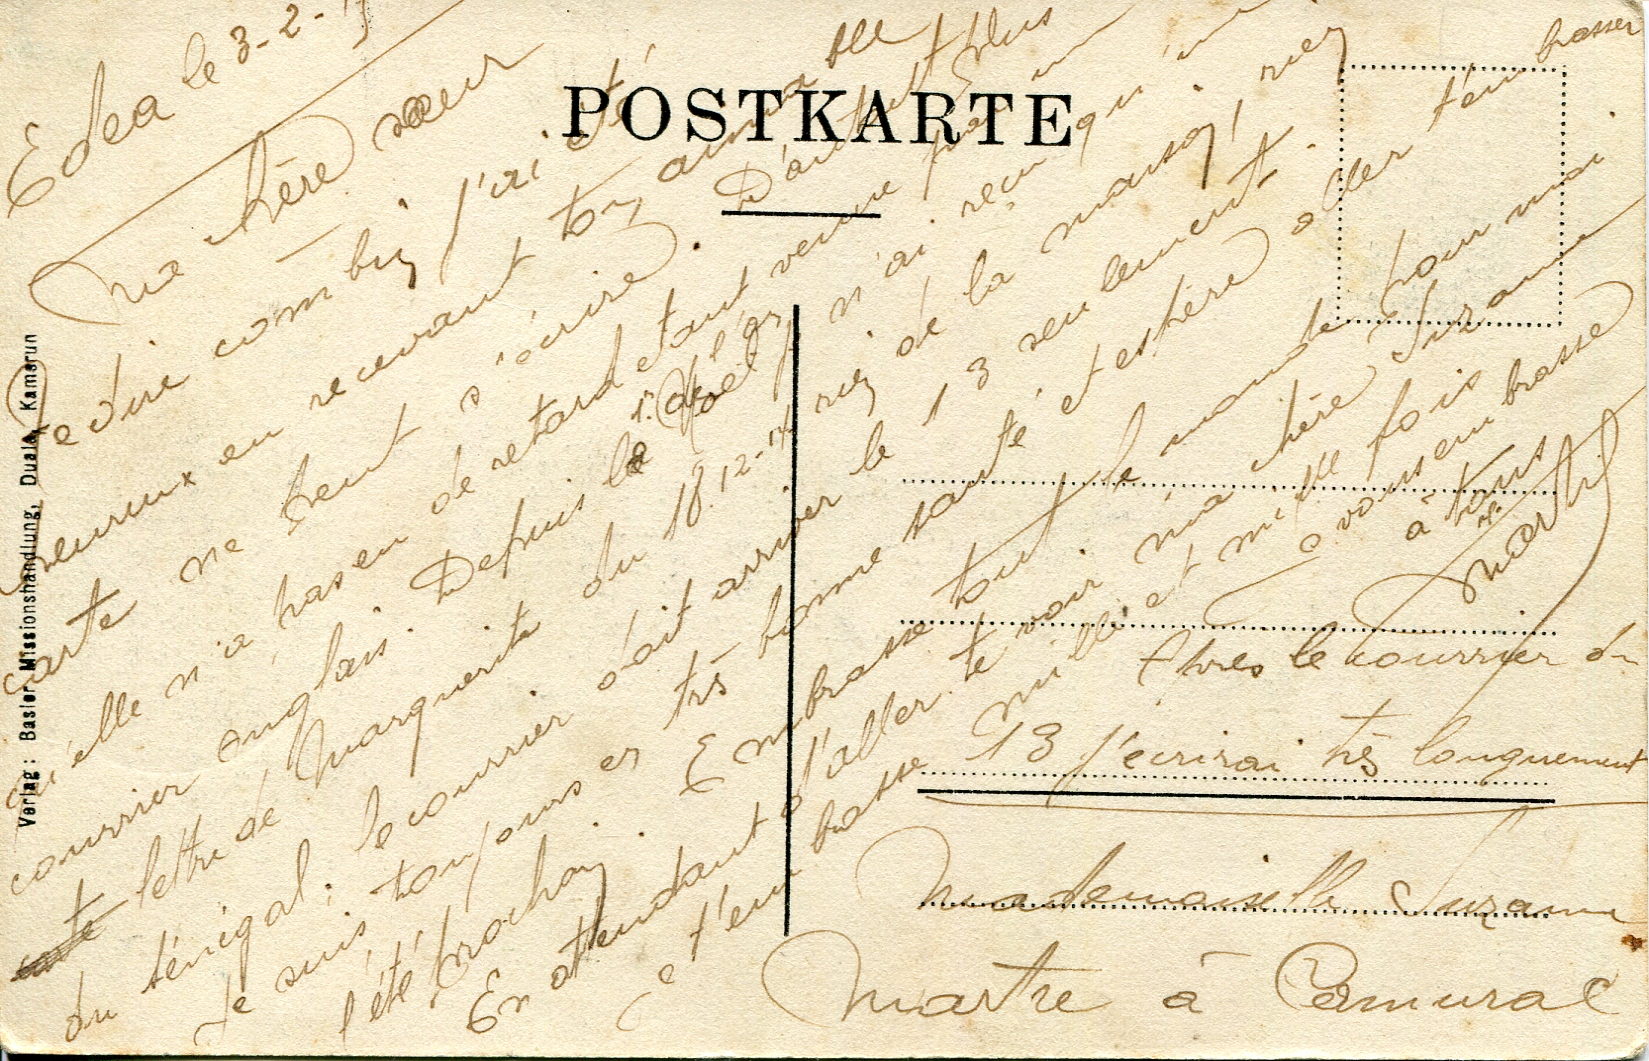 POSTKARTE
Verlag: Basler Missionshandlung, Duala, Kamerun
Edea le 3-2-15
Ma chère sœur
Te dire combien j'ai été
heureux en recevant ton aimable
carte ne peut s'écrire. D'autant plus
qu'elle n'a pas eu de retard étant venue par un
courrier anglais. Depuis la Noël je n'ai reçu qu'une
lettre de Marguerite du 18-12-14 rien de la maison, rien
du Sénégal; le courrier doit arriver le 13 seulement.
Je suis toujours en très bonne santé et espère aller t'embrasser
l'été prochain. Embrasse tout le monde pour moi.
En attendant d'aller te voir ma chère Suzanne
je t'embrasse mille et mille fois
à vous embrasse
à tous
Martre
Après le courrier du
13 j'écrirai très longuement
Mademoiselle Suzanne
Martre à Camurac